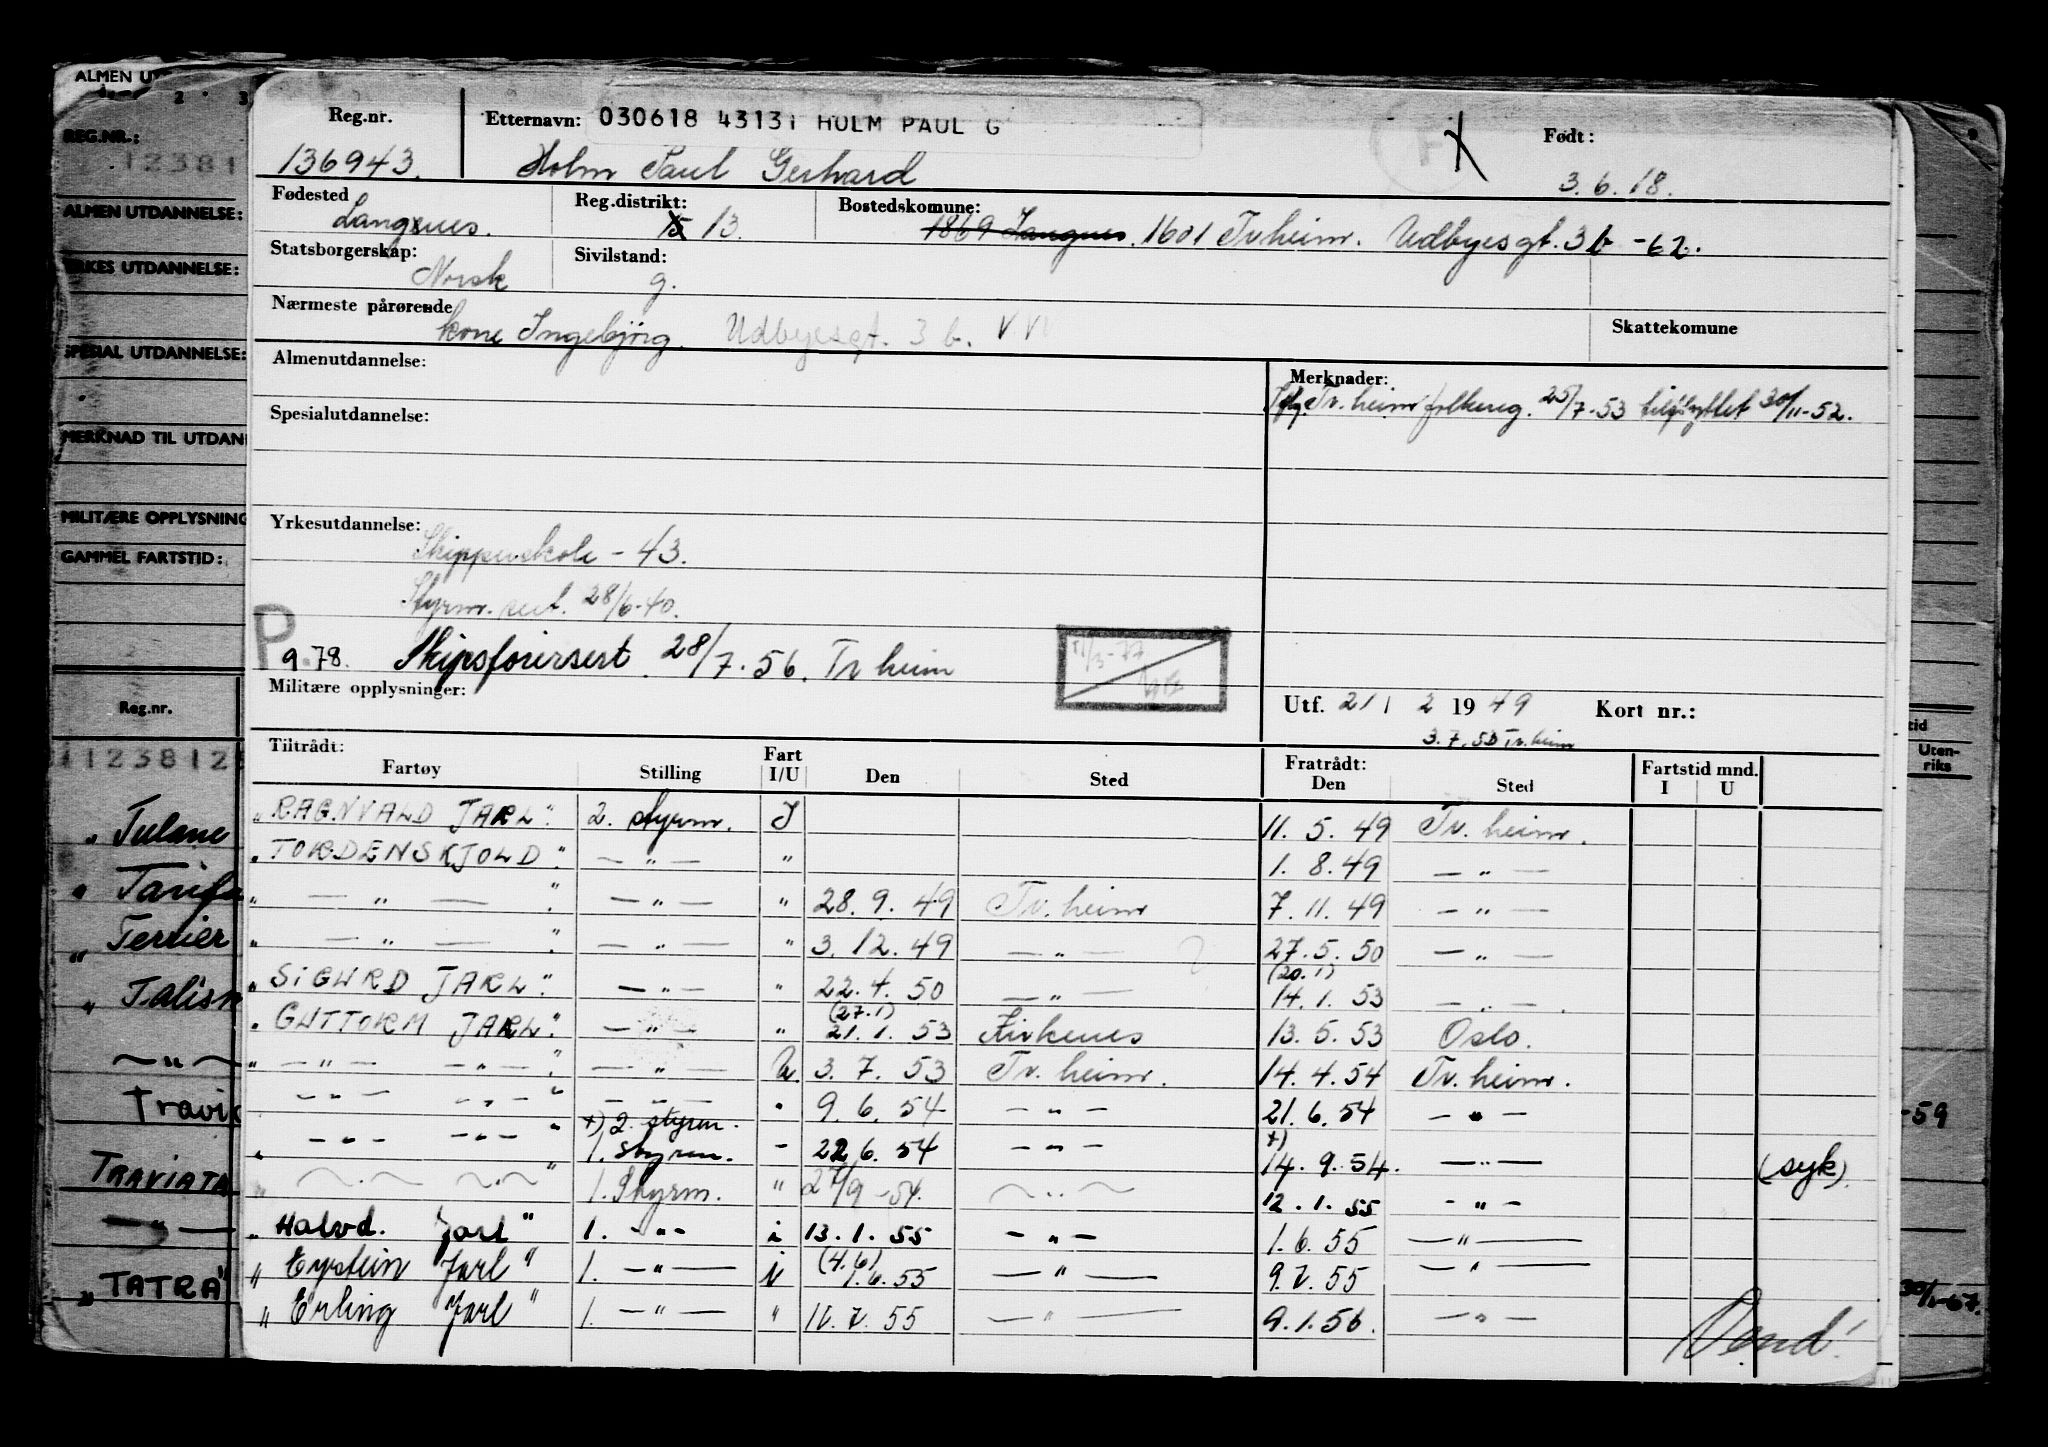 ALMEN UT
REG.NR.:
12381
ALMEN UTDANNELSE:
YRKES UTDANNELSE:
SPESIAL UTDANNELSE:
MERKNAD TIL UTDAN
MILITÆRE OPPLYSNING
GAMMEL FARTSTID:
Reg.nr.
1123812
„ Tulane
" Tarifa
„ Terrier
„ Talism
— " —
Travi
TRAVIATA
— " —
„ TATRA"
Reg.nr. Etternavn: 030618 43131 HOLM PAUL G Født:
136943. Holm Paul Gerhard 3.6.18.
Fødested Reg.distrikt: Bostedskommune:
Langnes. 15 13. 1869 Langnes. 1601 Tr.heim. Udbyesgt. 3b -62.
Statsborgerskap: Sivilstand:
Norsk g.
Nærmeste pårørende Skattekomune
kone Ingebjørg. Udbyesgt. 3 b.
Almenutdannelse: Merknader:
Tr.heim folkereg. 25/7-53 tilflyttet 30/11-52.
Spesialutdannelse:
Yrkesutdannelse:
Skipperskole - 43.
Styrm. sert. 28/6-40.
P.
9.78. Skipsførersert. 28/7.56. Tr heim
11/3-77
Militære opplysninger: Utf. 21 / 2 1949 Kort nr.:
3.7.53 Tr.heim
Tiltrådt: Fart Fratrådt: Fartstid mnd.
Fartøy Stilling I/U Den Sted Den Sted I U
„RAGNVALD JARL". 2. styrm. I 11. 5. 49 Tr. heim.
„TORDENSKJOLD". — " — " 1. 8. 49 — " —
" — " — " — " — " 28. 9. 49 Tr. heim 7. 11. 49 — " —
" — " — " — " — " 3. 12. 49 — " — 27. 5. 50 — " —
(20.1)
„SIGURD JARL". — " — " 22. 4. 50 — " — 14. 1. 53 — " —
(27.1)
„GUTTORM JARL". — " — " 21. 1. 53 Kirkenes 13. 5. 53 Oslo.
" — " — — " — " — " — U. 3. 7. 53 Tr. heim. 14. 4. 54 Tr. heim.
— " — — " — " — " — " 9. 6. 54 — " — 21. 6. 54 — " —
+) 2. styrm. +)
" — " — — " — " 1. styrm. - 22 6. 54 — " — 14. 9. 54. — " — (syk)
" — " — — " — " 1. Styrm. " 27/9 -54. — " — 12. 1. 55 — " —
„ Halvd. Jarl" 1. — " — i 13. 1. 55 — " — 1. 6. 55 — " —
(4.6)
„ Eystein Jarl" 1. — " — i 1. 6. 55 — " — 9. 7. 55 — " —
„ Erling Jarl" 1. — " — " 11. 7. 55 — " — 9. 1. 56. — " —
Vend!
tid
Uten-
riks
-59
30/1-67.